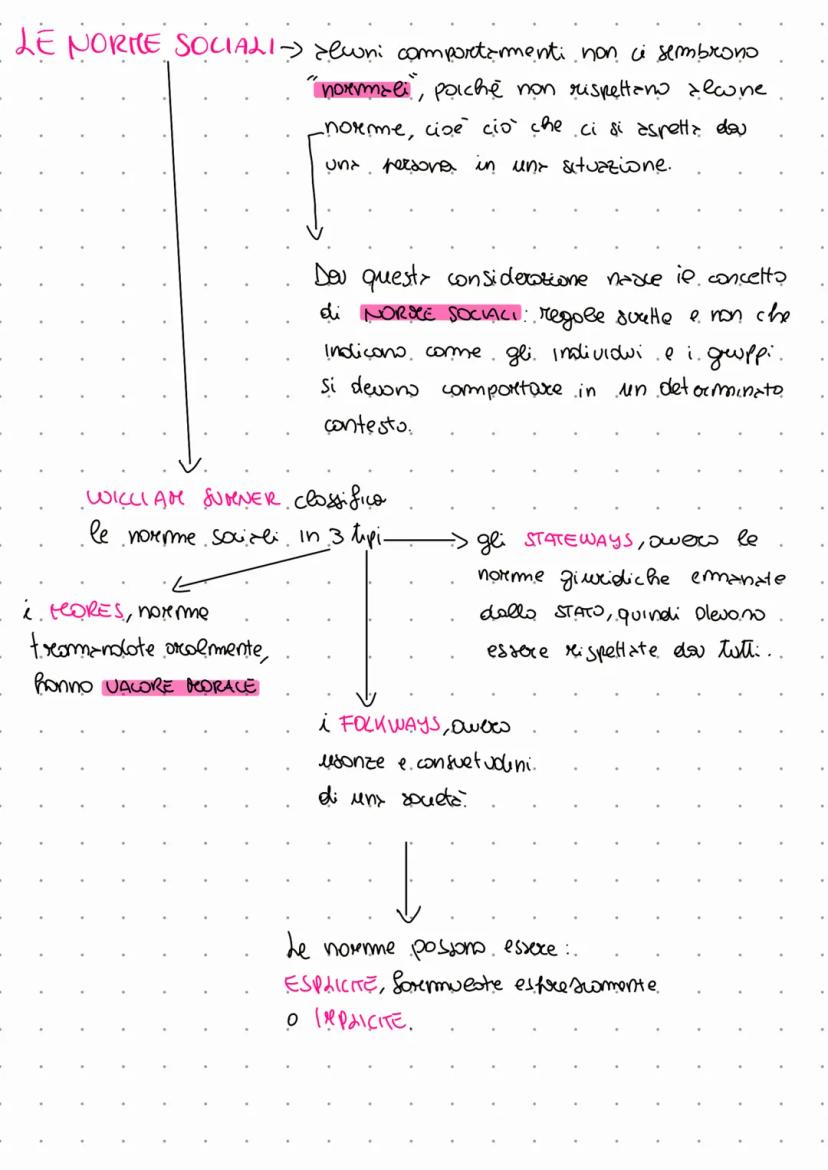 LE NORME SOCIALI → alcuni comportamenti non ci sembrano
"normali", poiché non rispettano alcune
norme, cioè ciò che ci si aspetta da
una persona in una situazione.
Da questa considerazione nasce il concetto
di NORME SOCIALI: regole scritte e non che
indicano come gli individui e i gruppi
si devono comportare in un determinato
contesto.
WILLIAM SUMNER classifica
le norme sociali in 3 tipi → gli STATEWAYS, ovvero le
norme giuridiche emanate
dallo STATO, quindi devono
essere rispettate da tutti.
i MORES, norme
tramandate oralmente,
hanno VALORE MORALE
i FOLKWAYS, ovvero
usanze e consuetudini
di una società.
Le norme possono essere:
ESPLICITE, formulate espressamente
o IMPLICITE.